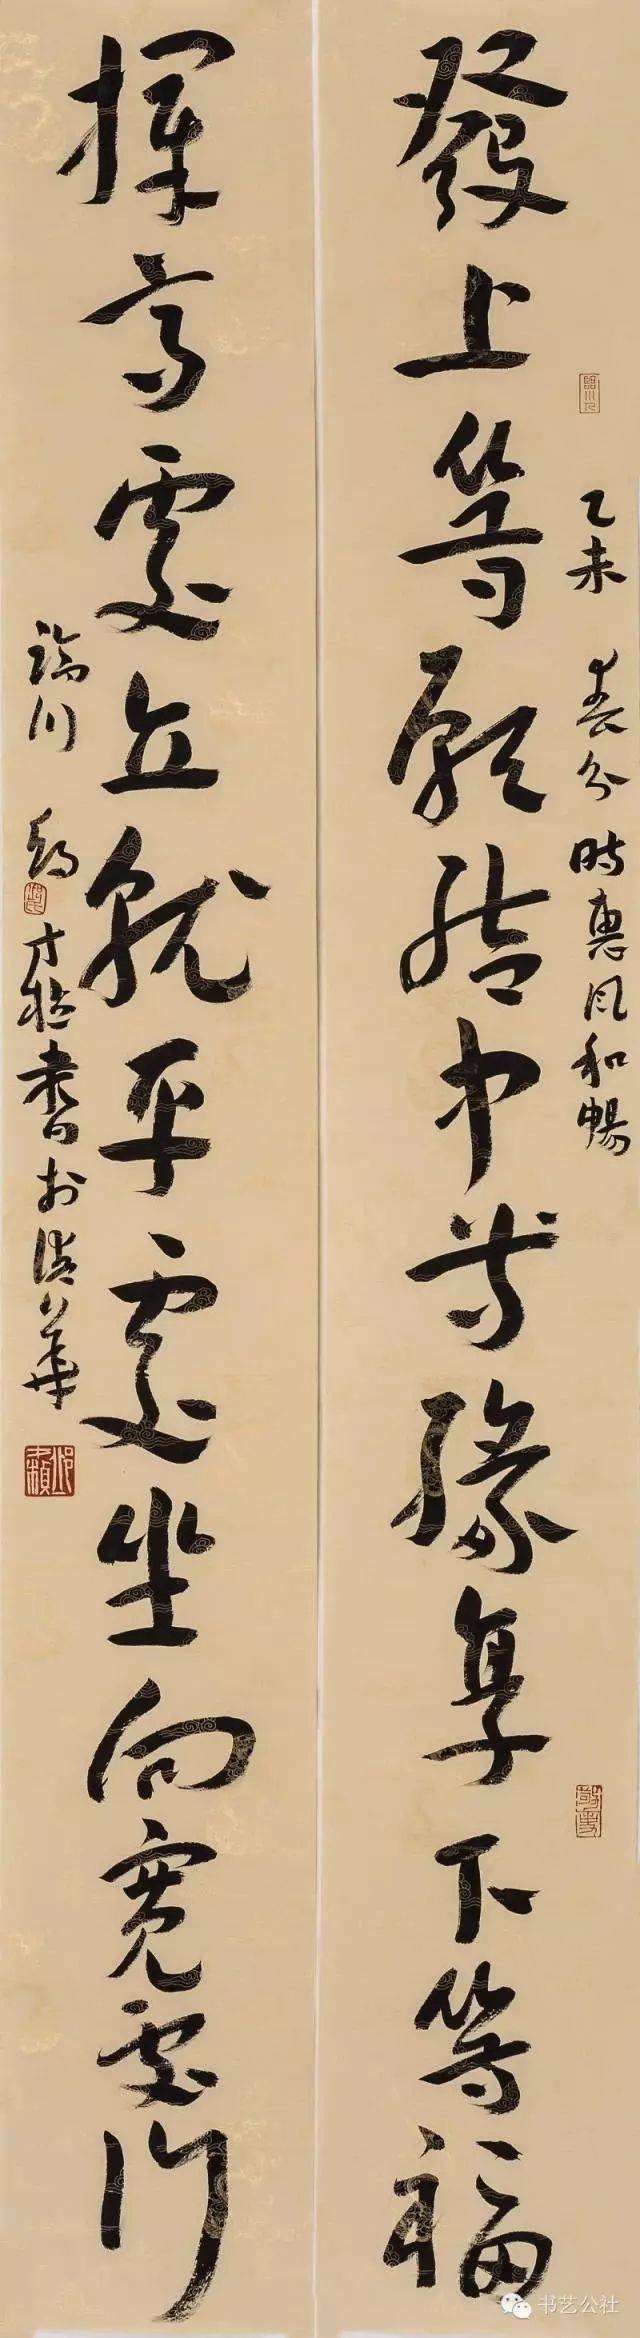 發上等願結中等緣享下等福
乙未 春分 時惠風和暢
擇高處立就平處坐向寬處行
書於清華
书艺公社